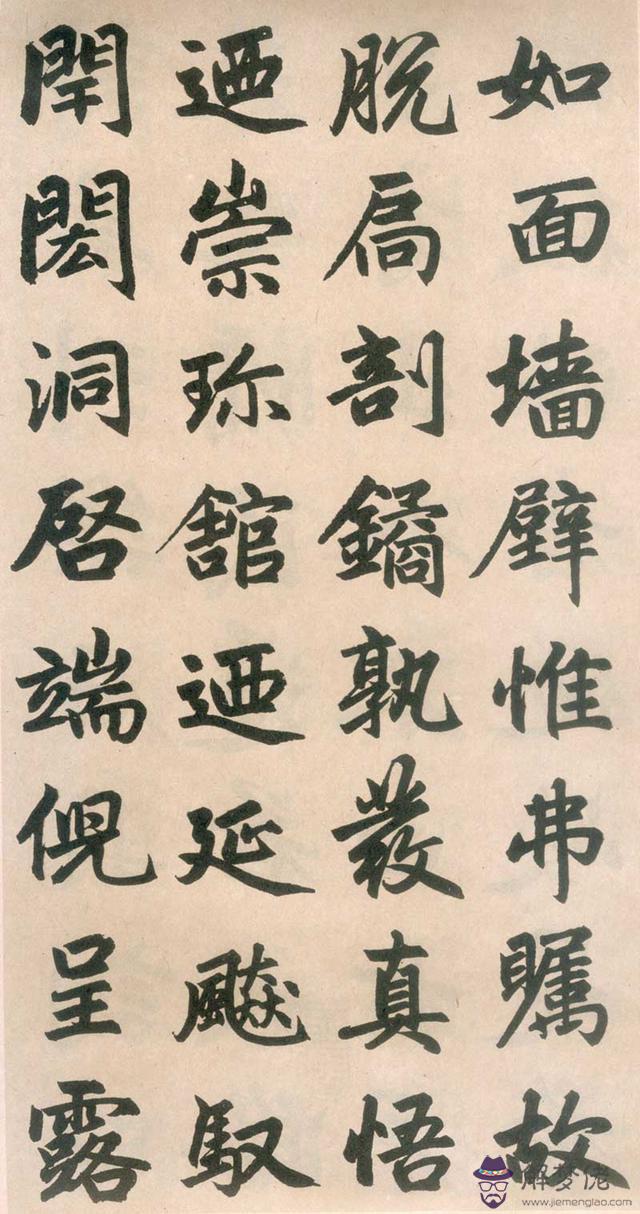 如面墙壁惟弗瞩故
脱扃剖鐍孰發真悟
迺崇珎舘迺延飇馭
閈閎洞啓端倪呈露
解梦佬
www.jiemenglao.com